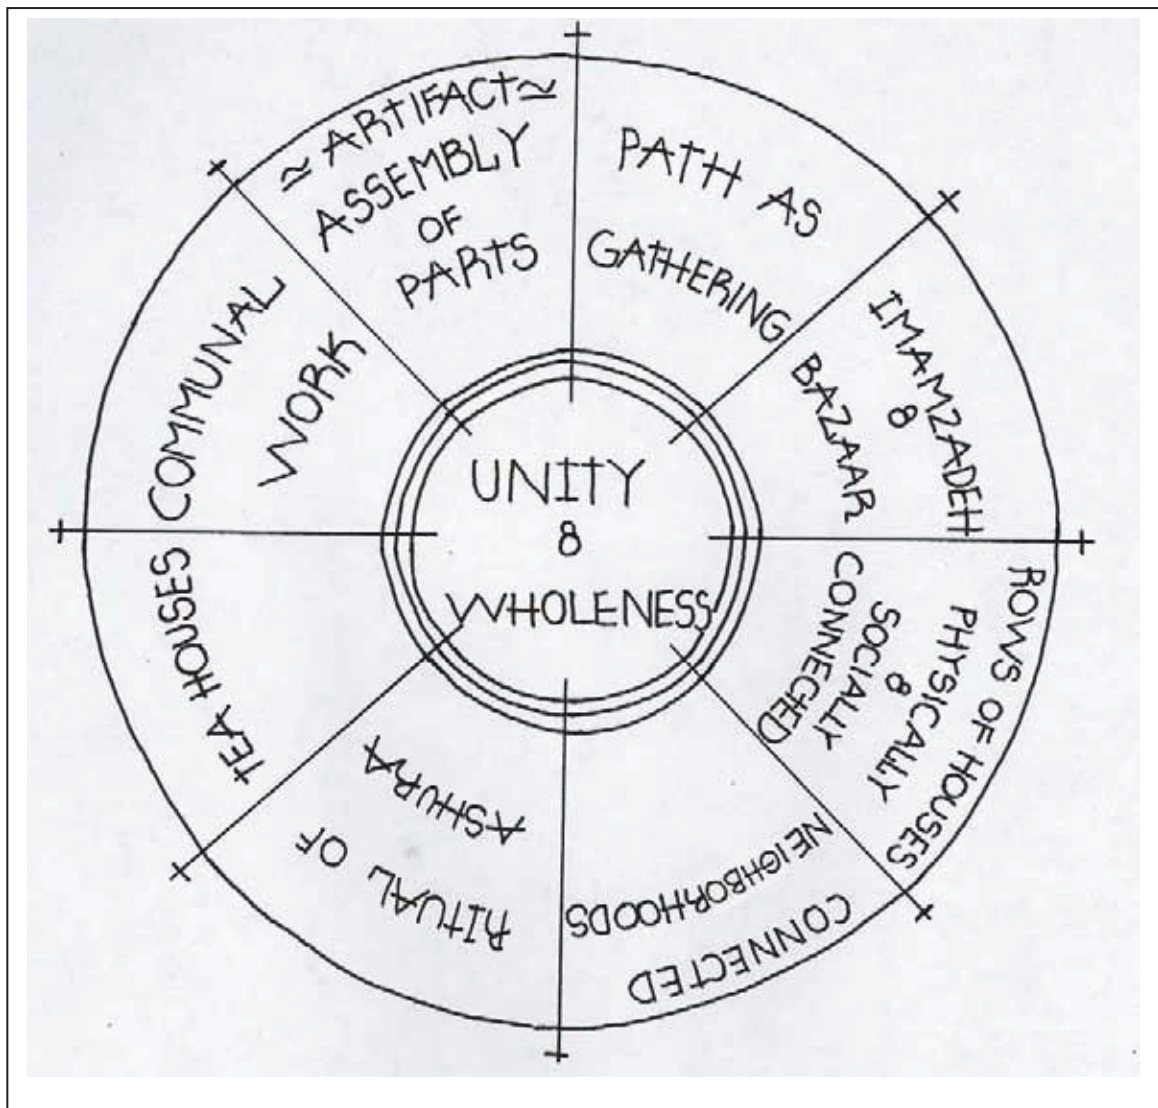 ≃ ARTIFACT ≃
ASSEMBLY
OF
PARTS
PATH AS
GATHERING
IMAMZADEH
8
BAZAAR
ROWS OF HOUSES
PHYSICALLY
8
SOCIALLY
CONNECTED
CONNECTED
NEIGHBORHOODS
RITUAL OF
ASHURA
TEA HOUSES
COMMUNAL
WORK
UNITY
8
WHOLENESS